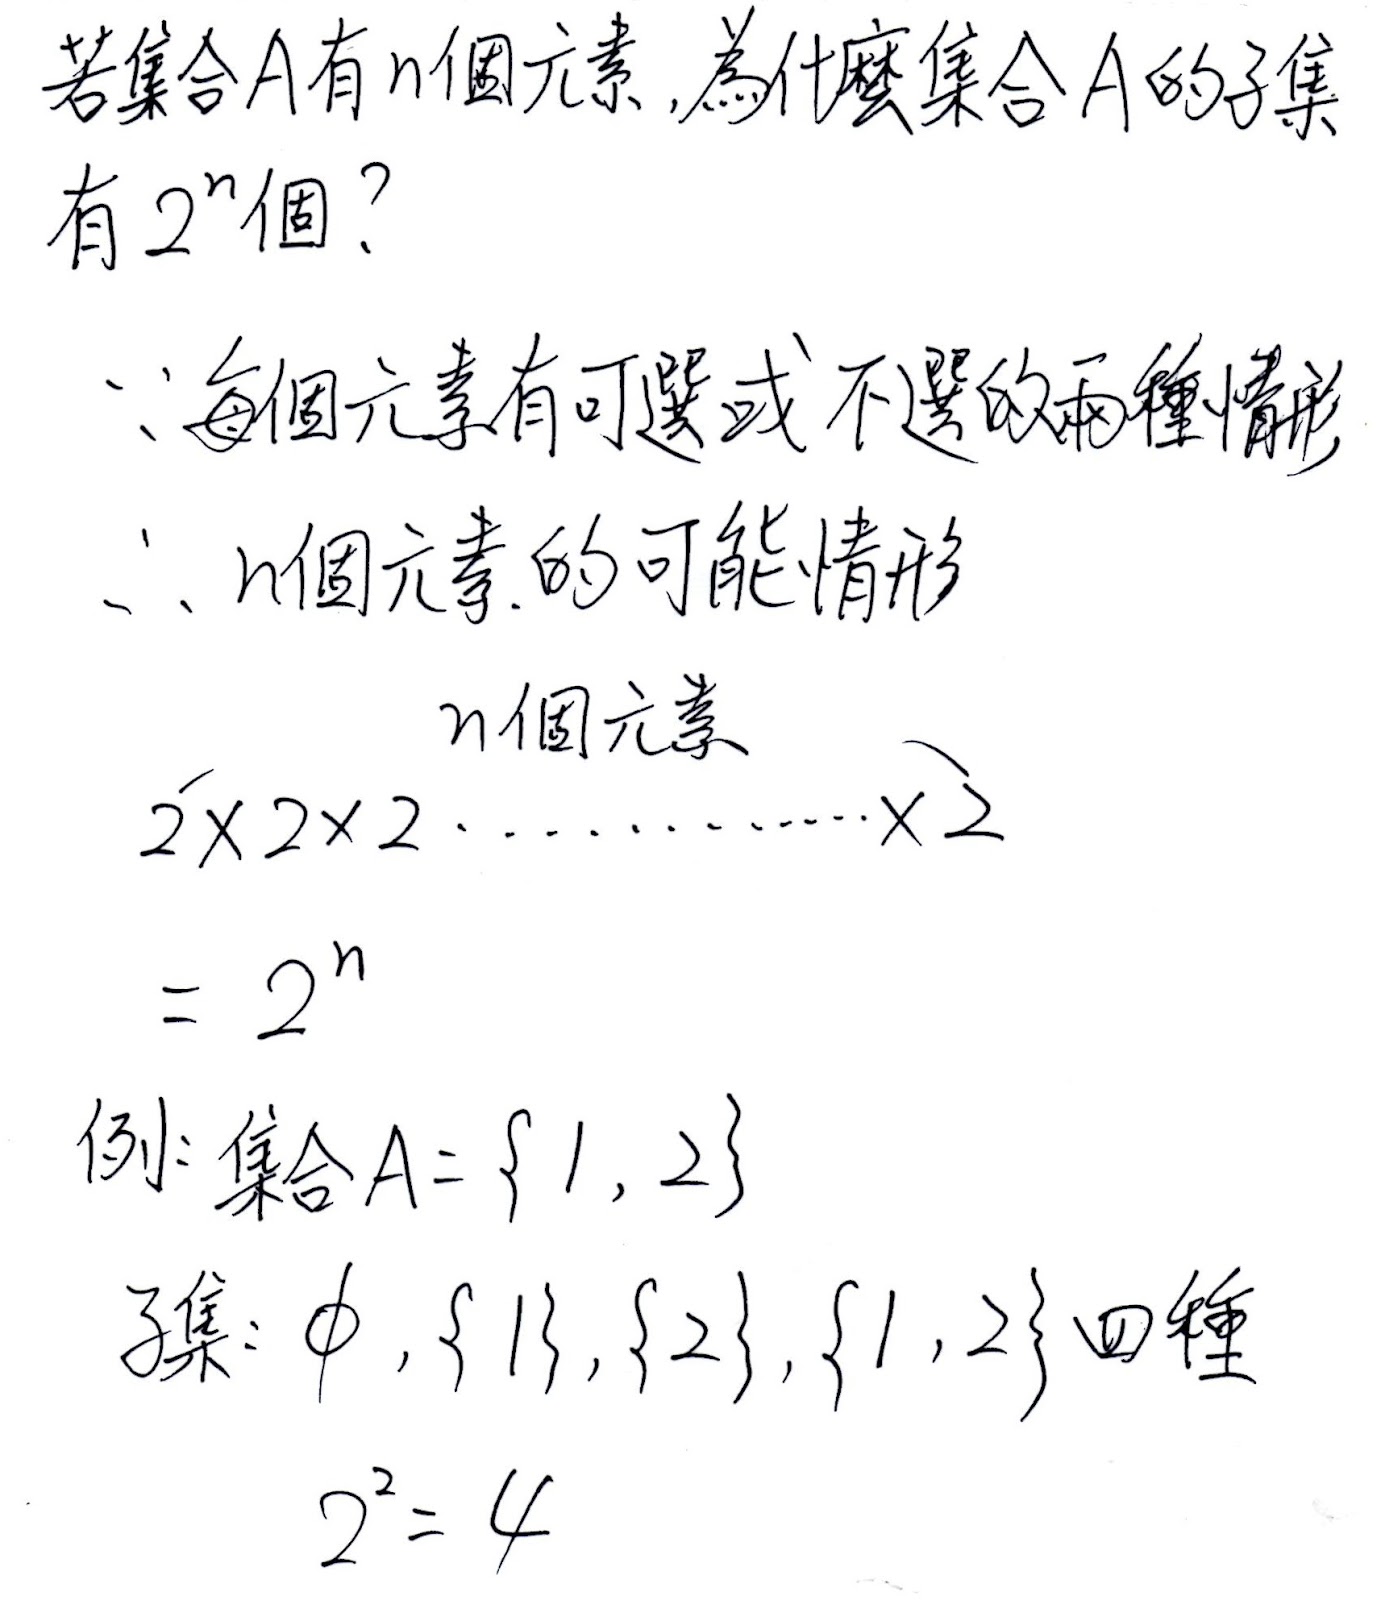 若集合A有n個元素,為什麼集合A的子集
有2ⁿ個?
∵每個元素有可選或不選的兩種情形
∴n個元素的可能情形
n個元素
2×2×2··············×2
= 2ⁿ
例:集合A={1,2}
子集:φ,{1},{2},{1,2}四種
2²=4